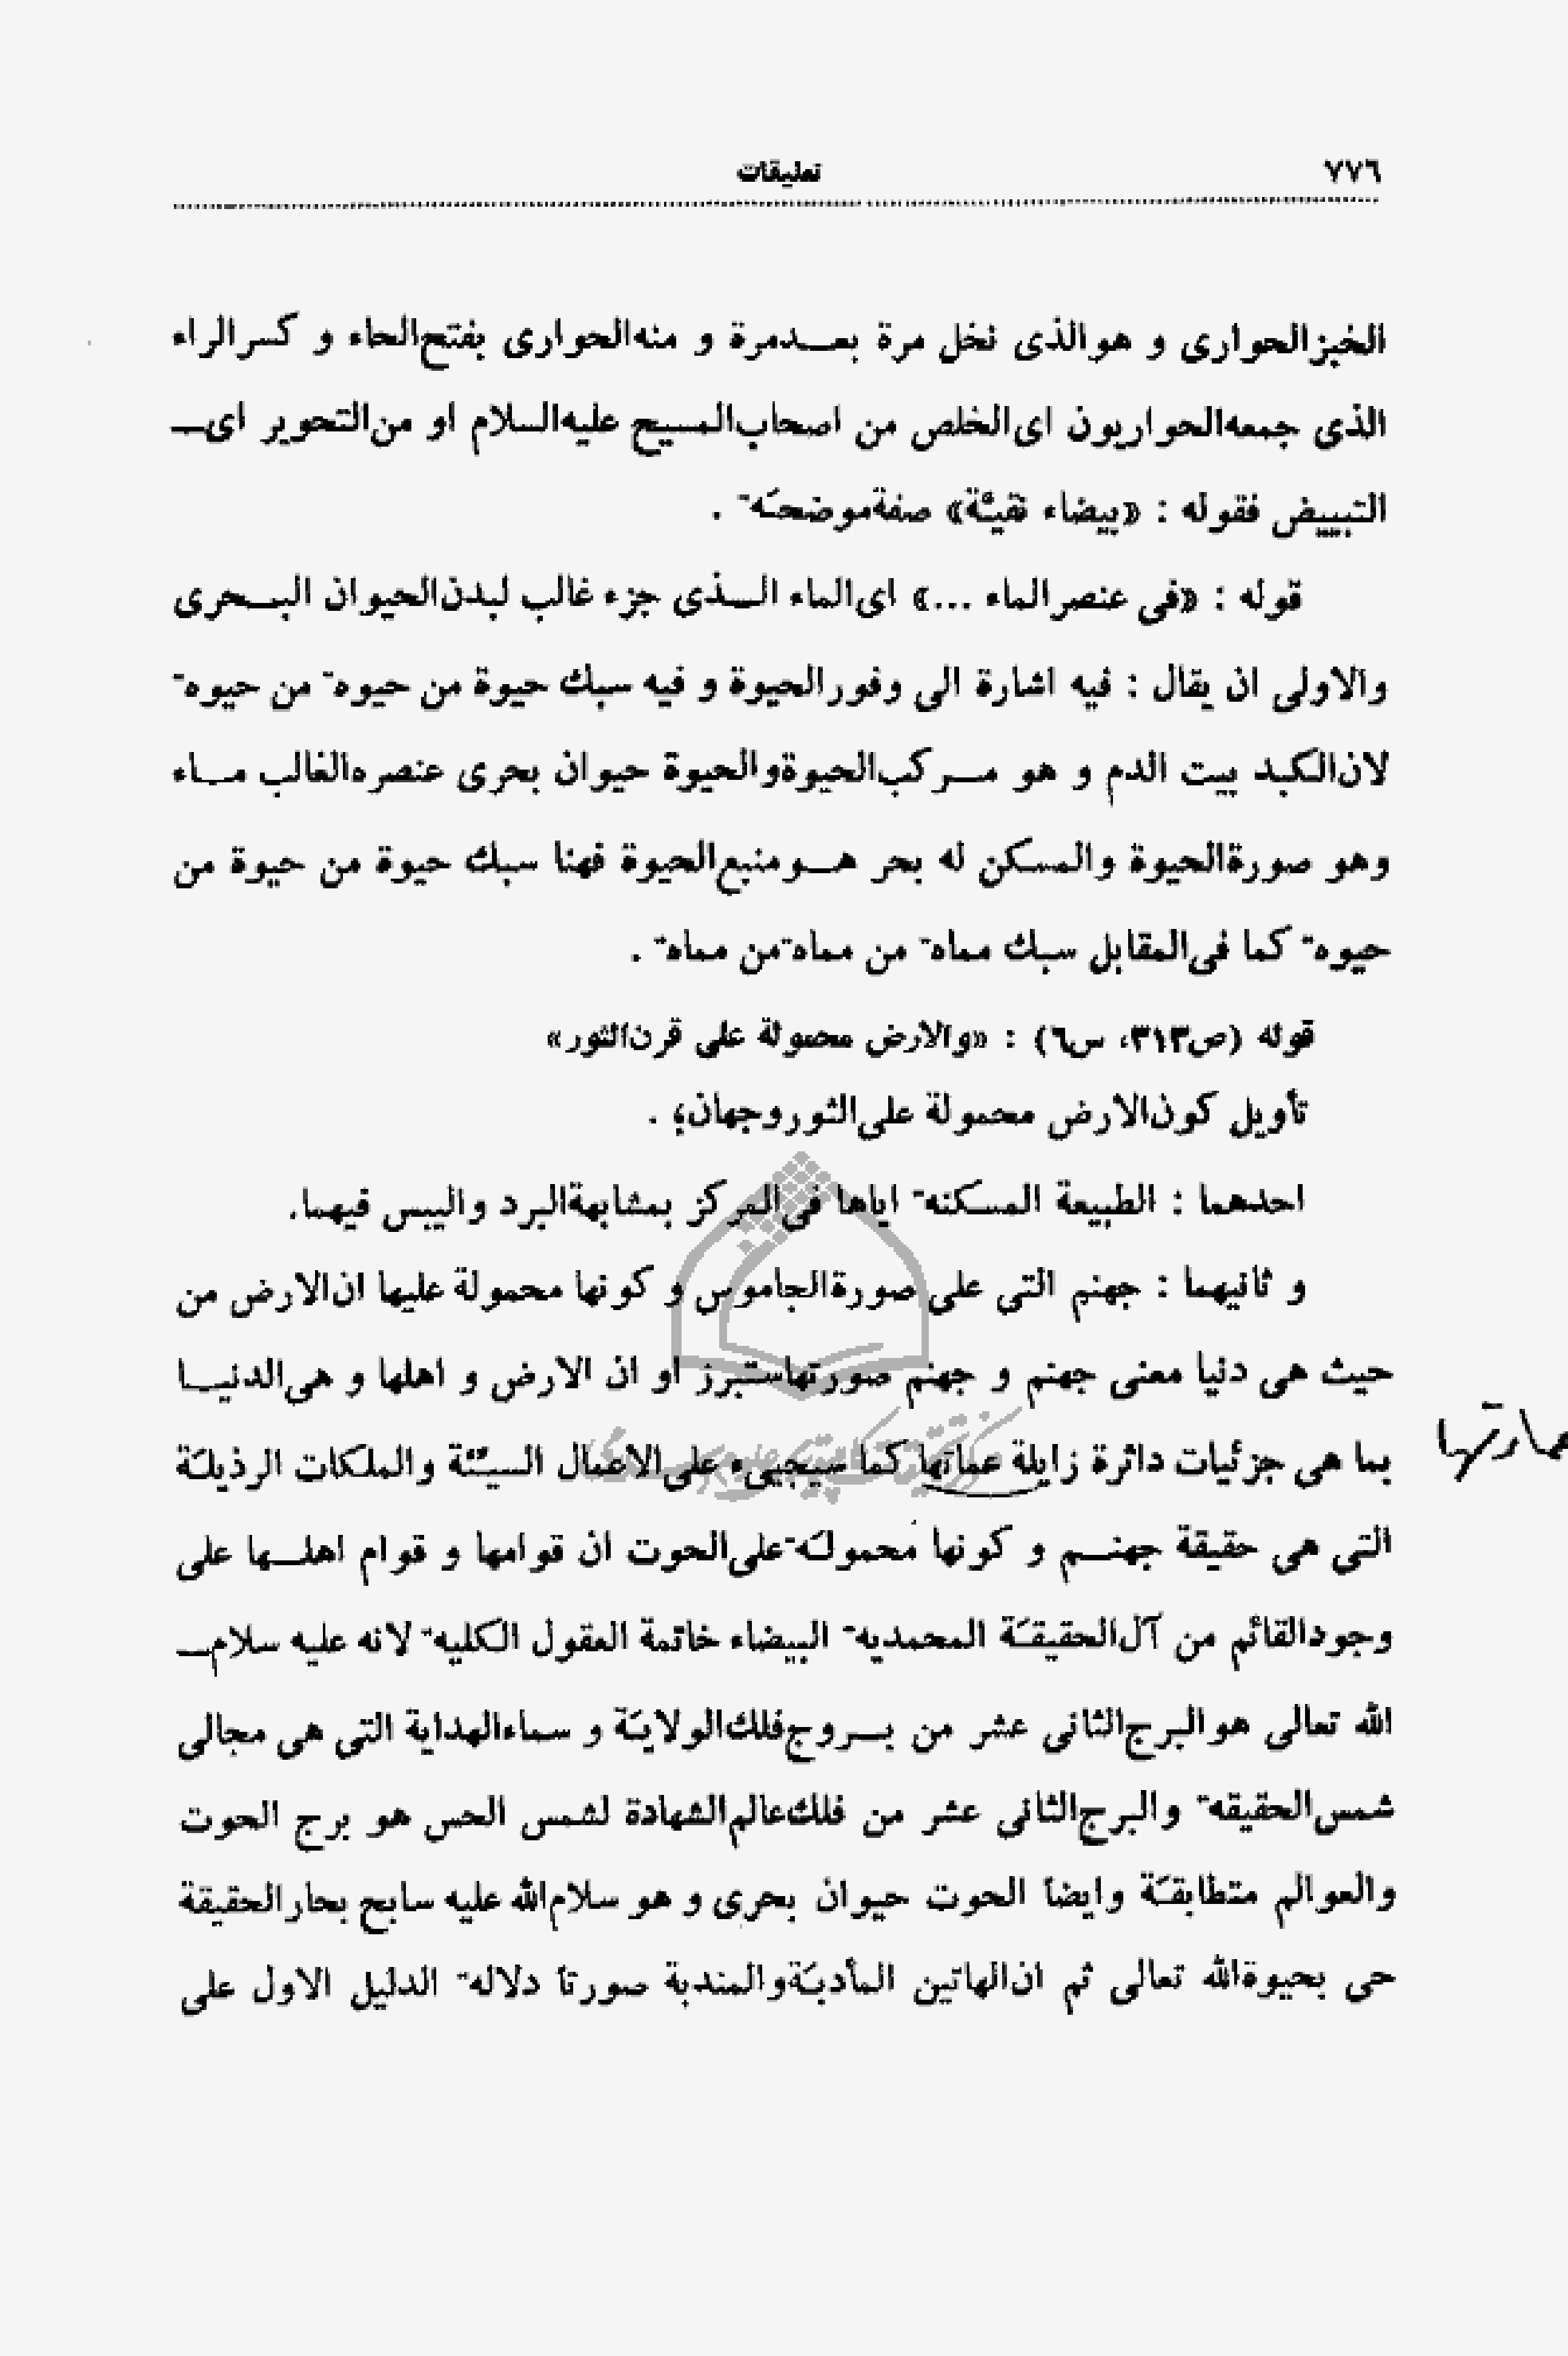 ٧٧٦
تعليقات
الخبزالحوارى و هوالذى نخل مرة بعـــدمرة و منه‌الحوارى بفتح‌الحاء و كسرالراء
الذى جمعه‌الحواريون اى‌الخلص من اصحاب‌المسيح عليه‌السلام او من‌التحوير اى‍ـ
التبييض فقوله : «بيضاء نقيئة» صفةموضحـَة .
قوله : «فى عنصرالماء ...» اى‌الماء الـــذى جزء غالب لبدن‌الحيوان البـــحرى
والاولى ان يقال : فيه اشارة الى وفورالحيوة و فيه سبك حيوة من حيوة من حيوة
لان‌الكبد بيت الدم و هو مـــركب‌الحيوةوالحيوة حيوان بحرى عنصره‌الغالب مـــاء
وهو صورةالحيوة والمسكن له بحر هـــومنبع‌الحيوة فهنا سبك حيوة من حيوة من
حيوة كما فى‌المقابل سبك مماة من مماةمن مماة .
قوله (ص٣١٣، س٦) : «والارض محمولة على قرن‌الثور»
تأويل كون‌الارض محمولة على‌الثوروجهان؛ .
احدهما : الطبيعة المسكنة اياها فى‌المركز بمشابهةالبرد واليبس فيهما.
و ثانيهما : جهنم التى على صورةالجاموس و كونها محمولة عليها ان‌الارض من
حيث هى دنيا معنى جهنم و جهنم صورتهاستبرز او ان الارض و اهلها و هى‌الدنيـــا
بما هى جزئيات داثرة زايلة عماتها كما سيجيىء على‌الاعمال السيـّئة والملكات الرذيلـَة
التى هى حقيقة جهنـــم و كونها محمولـَة على‌الحوت ان قوامها و قوام اهلـــها على
وجودالقائم من آل‌الحقيقـَة المحمدية البيضاء خاتمة العقول الكلية لانه عليه سلام‍ـ
الله تعالى هوالبرج‌الثانى عشر من بـــروج‌فلك‌الولايـَة و سماءالهداية التى هى مجالى
شمس‌الحقيقة والبرج‌الثانى عشر من فلك‌عالم‌الشهادة لشمس الحس هو برج الحوت
والعوالم متطابقـَة وايضاً الحوت حيوان بحرى و هو سلام‌الله عليه سابح بحارالحقيقة
حى بحيوةالله تعالى ثم ان‌الهاتين المأدبـَةوالمندبة صورتاً دلالة الدليل الاول على